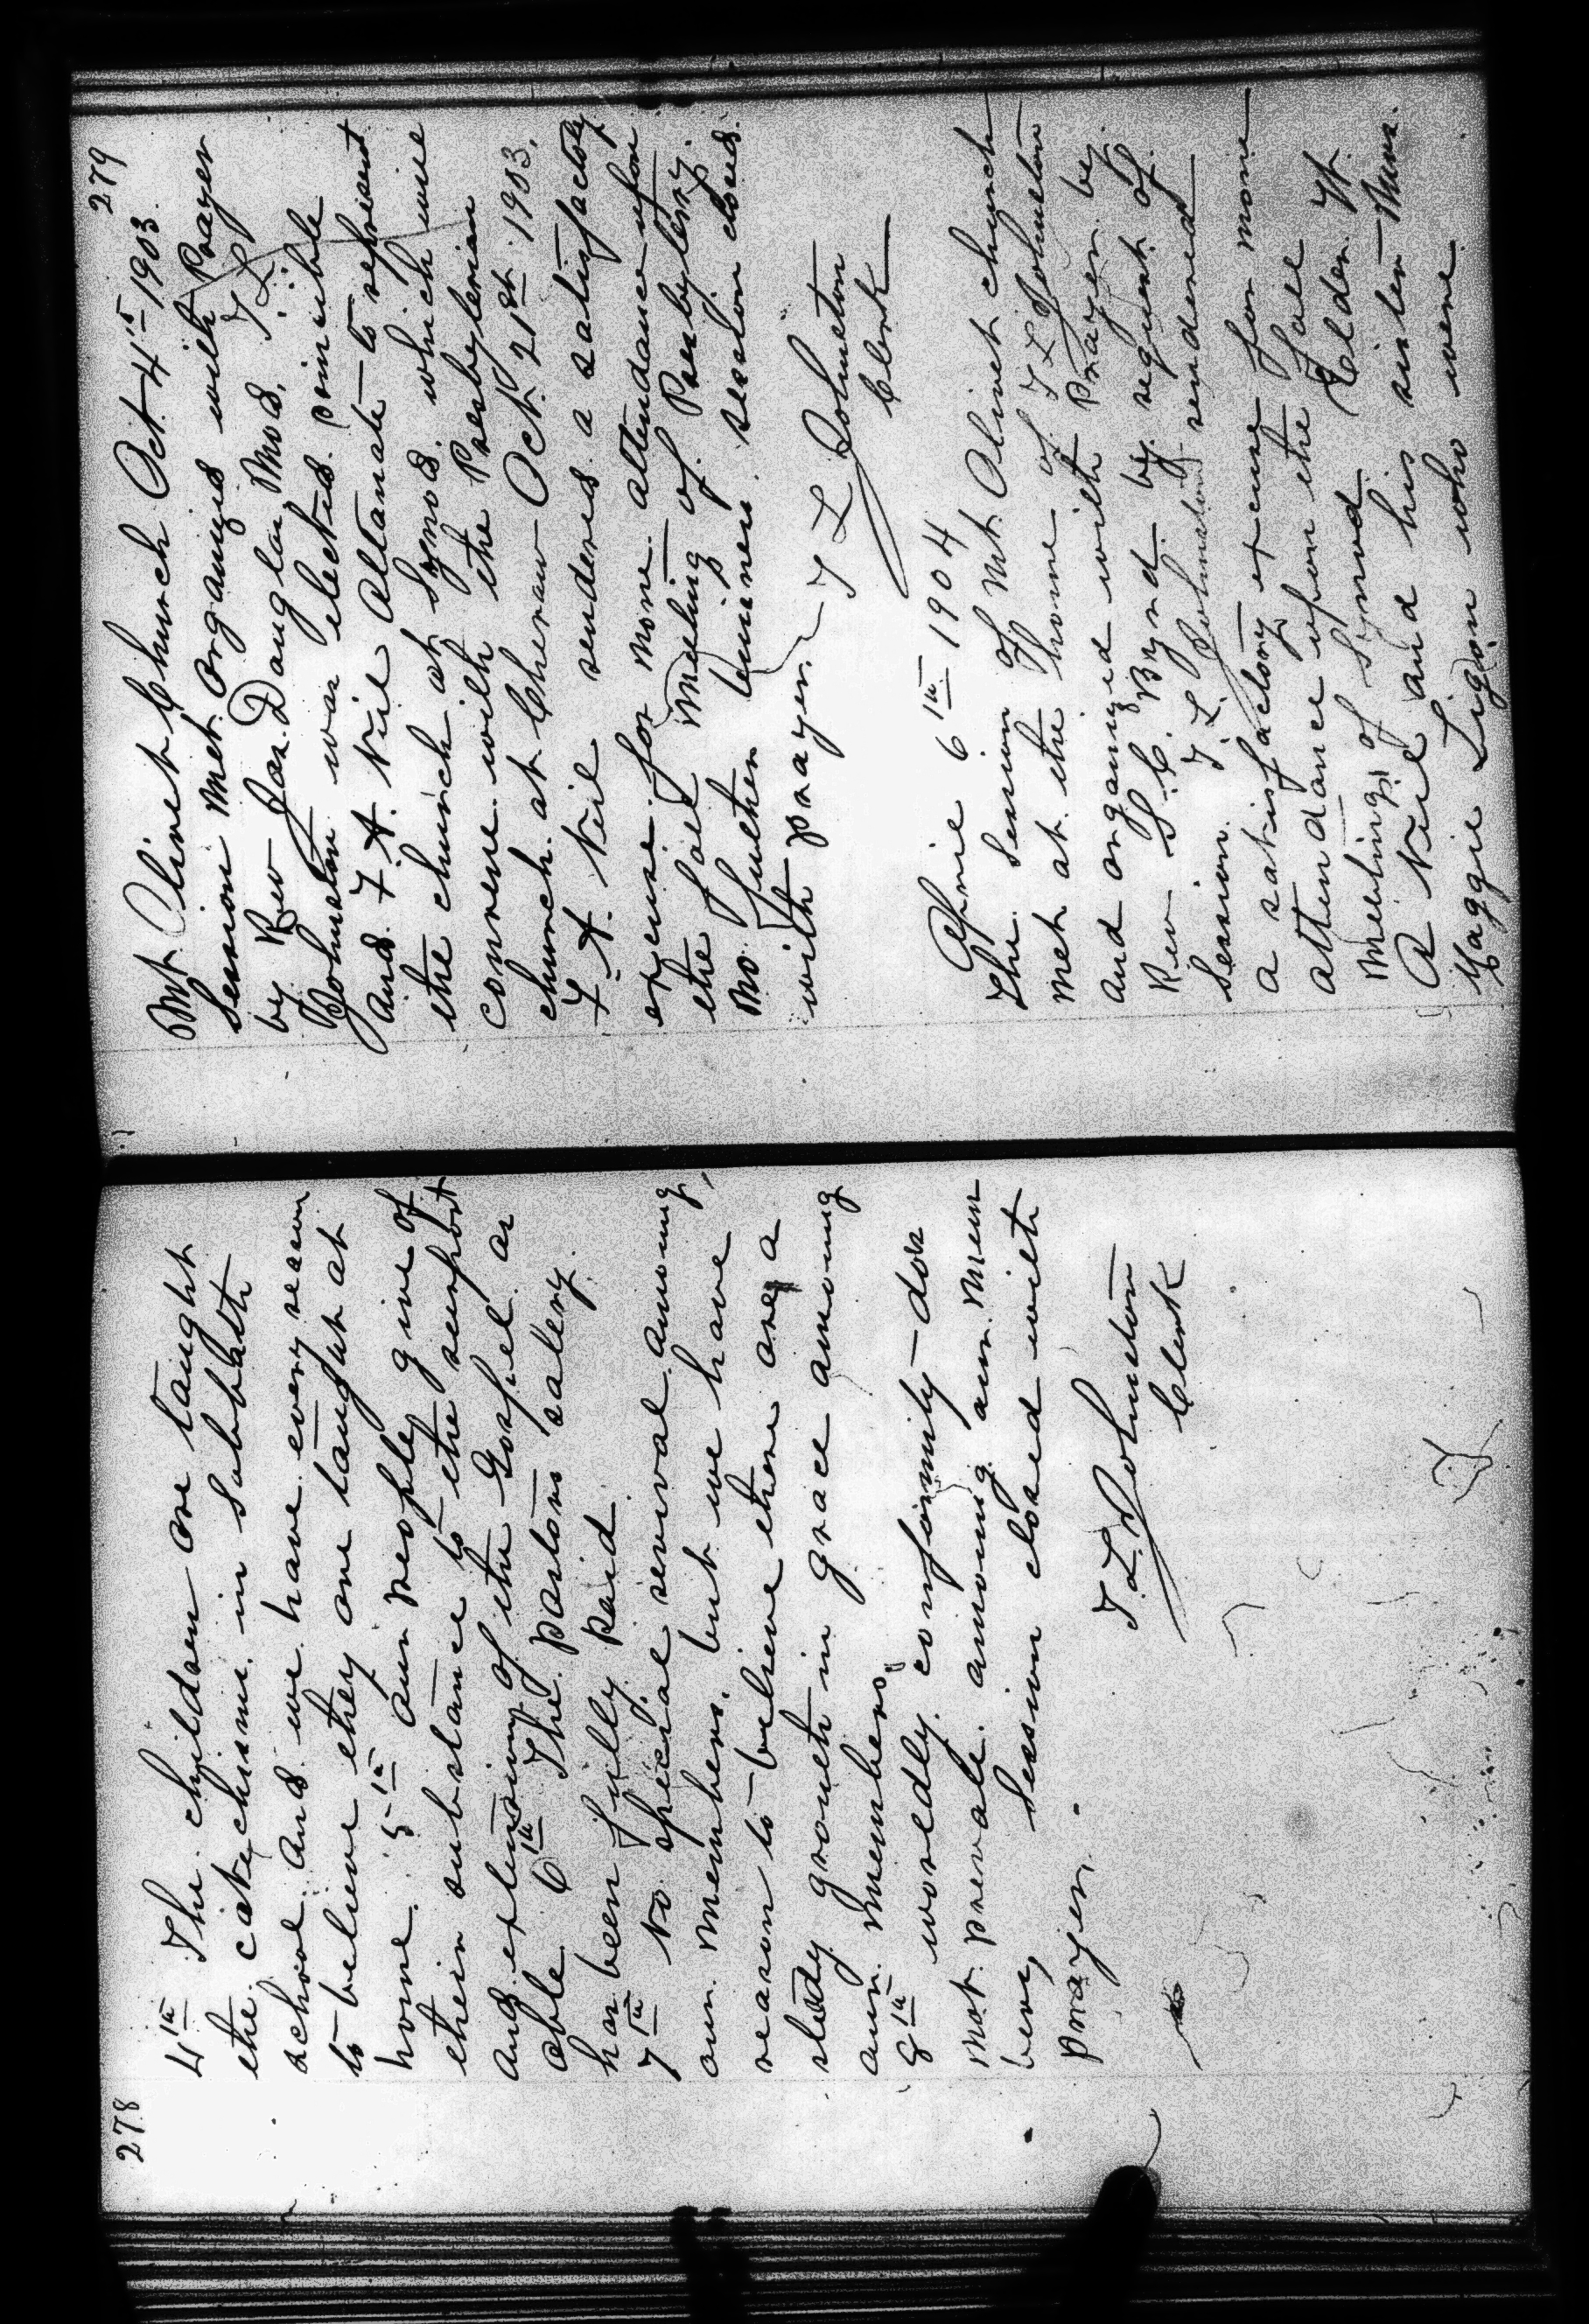 278
4th The children are taught
the catechism in Sabbath
school and we have every reason
to believe they are taught at
home. 5th our people give of
their substance to the support
and of the Gospel as
able 6th The pastors salery
has been fully paid
7th No special revival among
our members, but we have
reason to believe there are a
stedy growth in grace among
our members.
8th worldly conformity dos
not prevale among our mem
bers, Session closed with
prayer.
T. L. Johnston
Clerk
279
Mt Olivet Church Oct 4th 1903.
Session met organized with Prayer
by Rev Jas. Douglas, Mod, T. L.
Johnston was elected principle
and T. A. Neil Altanate to represent
the church at Synod, which will
convene with the Presbyterian
church at Cheraw Oct. 21st 1903,
T. A. Neil renderes a satisfactory
excuse for none attendance upon
the fall Meeting of Presbytery.
No further business session closed
with prayer. T L Johnston
Clerk
April 6th 1904
The Session of Mt Olivet church
met at the home of T L Johnston
and organized with Prayer by
Rev S. C. Byrd by request of
Session. T. L. Johnston rendered
a satisfactory excuse for none
attendance upon the fall
meeting of Synod. Elder H.
A Neil and his sister Mrs.
Maggie Ligon who were